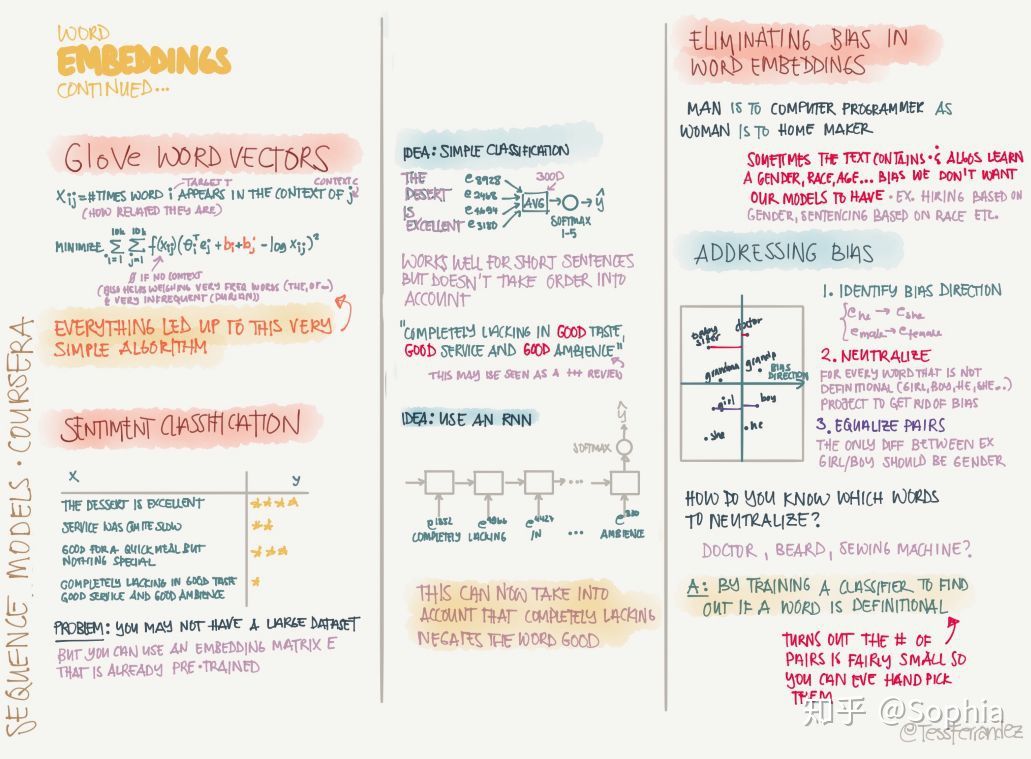 WORD
EMBEDDINGS
CONTINUED...
GloVe WORD VECTORS
TARGET T
CONTEXT C
Xij = # TIMES WORD i APPEARS IN THE CONTEXT OF j
(HOW RELATED THEY ARE)
10k 10k
MINIMIZE Σ Σ f(xij)(θiᵀej + bi + bj' - log xij)²
i=1 j=1
IF NO CONTEXT
(ALSO HELPS WEIGHING VERY FREQ WORDS (THE, OF...)
& VERY INFREQUENT (DURIAN))
EVERYTHING LED UP TO THIS VERY
SIMPLE ALGORITHM
SENTIMENT CLASSIFICATION
X
y
THE DESSERT IS EXCELLENT ★★★★
SERVICE WAS QUITE SLOW ★★
GOOD FOR A QUICK MEAL BUT
NOTHING SPECIAL ★★★
COMPLETELY LACKING IN GOOD TASTE
GOOD SERVICE AND GOOD AMBIENCE ★
PROBLEM: YOU MAY NOT HAVE A LARGE DATASET
BUT YOU CAN USE AN EMBEDDING MATRIX E
THAT IS ALREADY PRE·TRAINED
SEQUENCE MODELS · COURSERA
IDEA: SIMPLE CLASSIFICATION
THE e8928
DESERT e2468
IS e4694
EXCELLENT e3180
300D
AVG
ŷ
SOFTMAX
1-5
WORKS WELL FOR SHORT SENTENCES
BUT DOESN'T TAKE ORDER INTO
ACCOUNT
"COMPLETELY LACKING IN GOOD TASTE,
GOOD SERVICE AND GOOD AMBIENCE"
THIS MAY BE SEEN AS A +++ REVIEW
IDEA: USE AN RNN
ŷ
SOFTMAX
...
e1852 e4966 e4427 e330
COMPLETELY LACKING IN ... AMBIENCE
THIS CAN NOW TAKE INTO
ACCOUNT THAT COMPLETELY LACKING
NEGATES THE WORD GOOD
ELIMINATING BIAS IN
WORD EMBEDDINGS
MAN IS TO COMPUTER PROGRAMMER AS
WOMAN IS TO HOME MAKER
SOMETIMES THE TEXT CONTAINS · & ALGOS LEARN
A GENDER, RACE, AGE... BIAS WE DON'T WANT
OUR MODELS TO HAVE · EX. HIRING BASED ON
GENDER, SENTENCING BASED ON RACE ETC.
ADDRESSING BIAS
baby
sitter
doctor
grandma
grandp
BIAS
DIRECTION
girl
boy
she
he
1. IDENTIFY BIAS DIRECTION
ehe → eshe
emale → efemale
2. NEUTRALIZE
FOR EVERY WORD THAT IS NOT
DEFINITIONAL (GIRL, BOY, HE, SHE...)
PROJECT TO GET RID OF BIAS
3. EQUALIZE PAIRS
THE ONLY DIFF BETWEEN EX
GIRL/BOY SHOULD BE GENDER
HOW DO YOU KNOW WHICH WORDS
TO NEUTRALIZE?
DOCTOR, BEARD, SEWING MACHINE?
A: BY TRAINING A CLASSIFIER TO FIND
OUT IF A WORD IS DEFINITIONAL
TURNS OUT THE # OF
PAIRS IS FAIRLY SMALL SO
YOU CAN EVE HAND PICK
THEM
知乎 @Sophia
@TessFerrandez